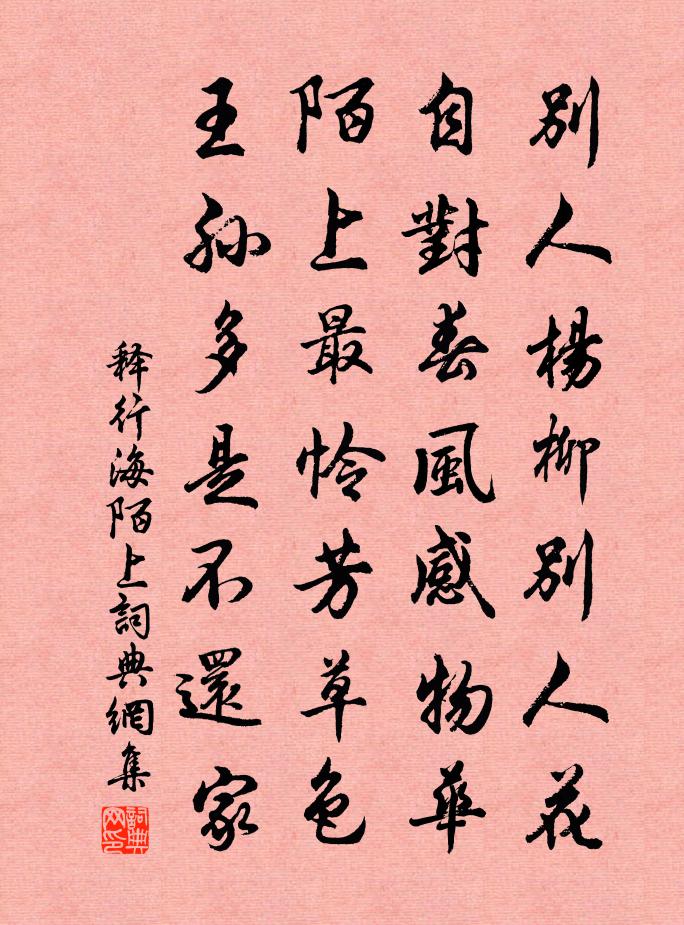 別人楊柳別人花
自對春風感物華
陌上最怜芳草色
王孙多是不還家
释行海陌上詞典網集
詞典网印